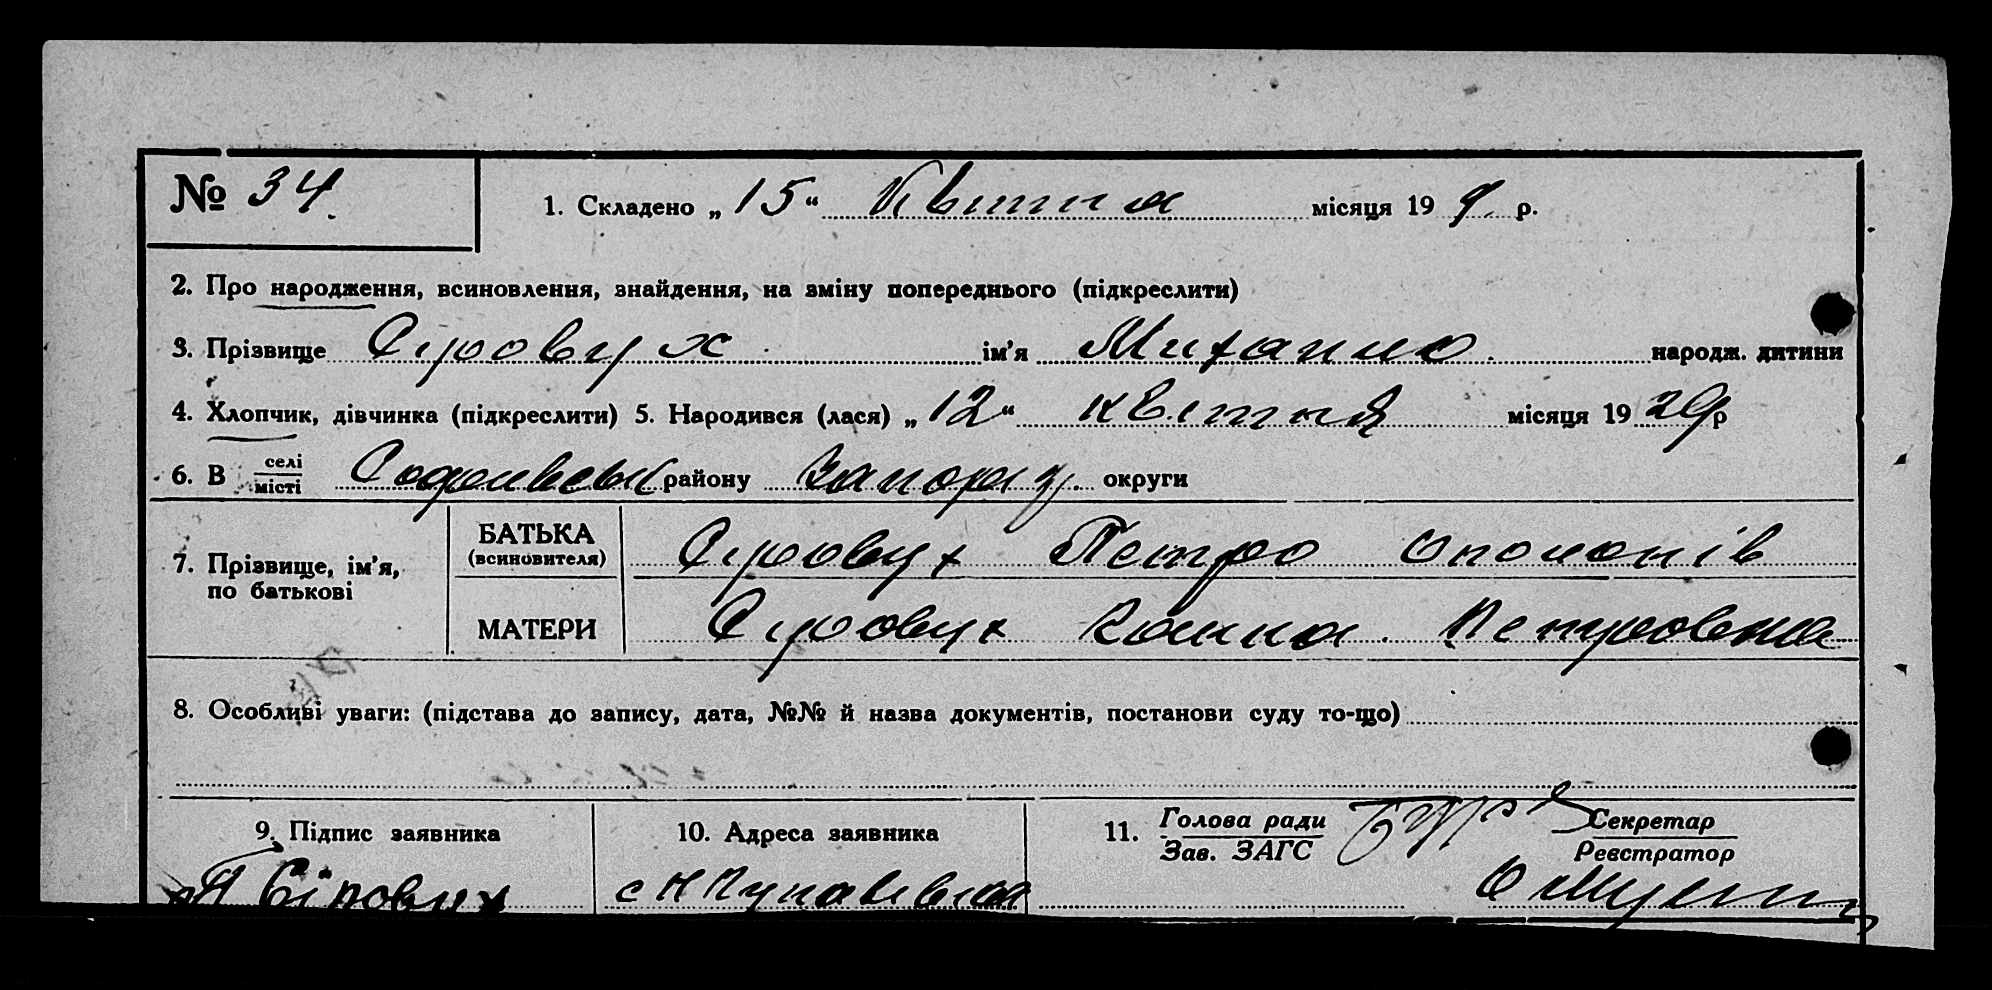 № 34.
1. Складено „ 15 “ Квітня місяця 19 9 р.
2. Про народження, всиновлення, знайдення, на зміну попереднього (підкреслити)
3. Прізвище Сіровух ім'я Михайло народж. дитини
4. Хлопчик, дівчинка (підкреслити) 5. Народився (лася) „ 12 “ квітня місяця 19 29 р
6. В селі місті району Запоріз. округи
7. Прізвище, ім'я, по батькові
БАТЬКА (всиновителя) Сіровух Петро
МАТЕРИ Сіровух Петровна
8. Особливі уваги: (підстава до запису, дата, №№ й назва документів, постанови суду то-що)
9. Підпис заявника
П Сіровух
10. Адреса заявника
с
11. Голова ради
Зав. ЗАГС
Секретар
Реєстратор